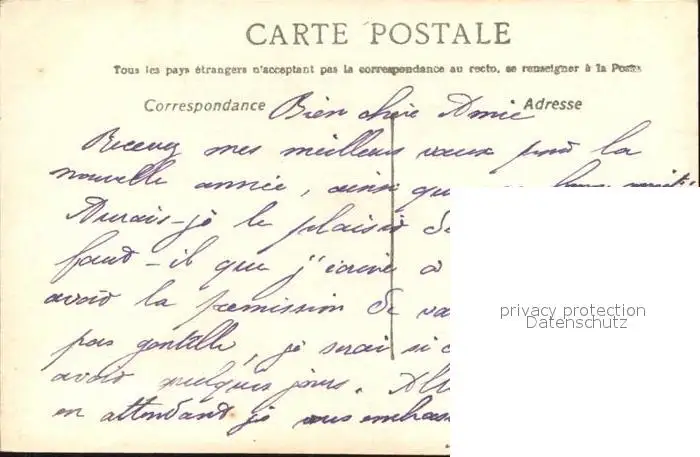 CARTE POSTALE
Tous les pays étrangers n'acceptant pas la correspondance au recto, se renseigner à la Poste
Correspondance
Adresse
Bien chère Amie
Recevez mes meilleurs vœux pour la
nouvelle année, ainsi que
Aurais-je le plaisir de
faut-il que j'écrive à
avoir la permission de
pas gentille, je serai si
avoir quelques jours.
en attendant je vous embrasse
privacy protection
Datenschutz